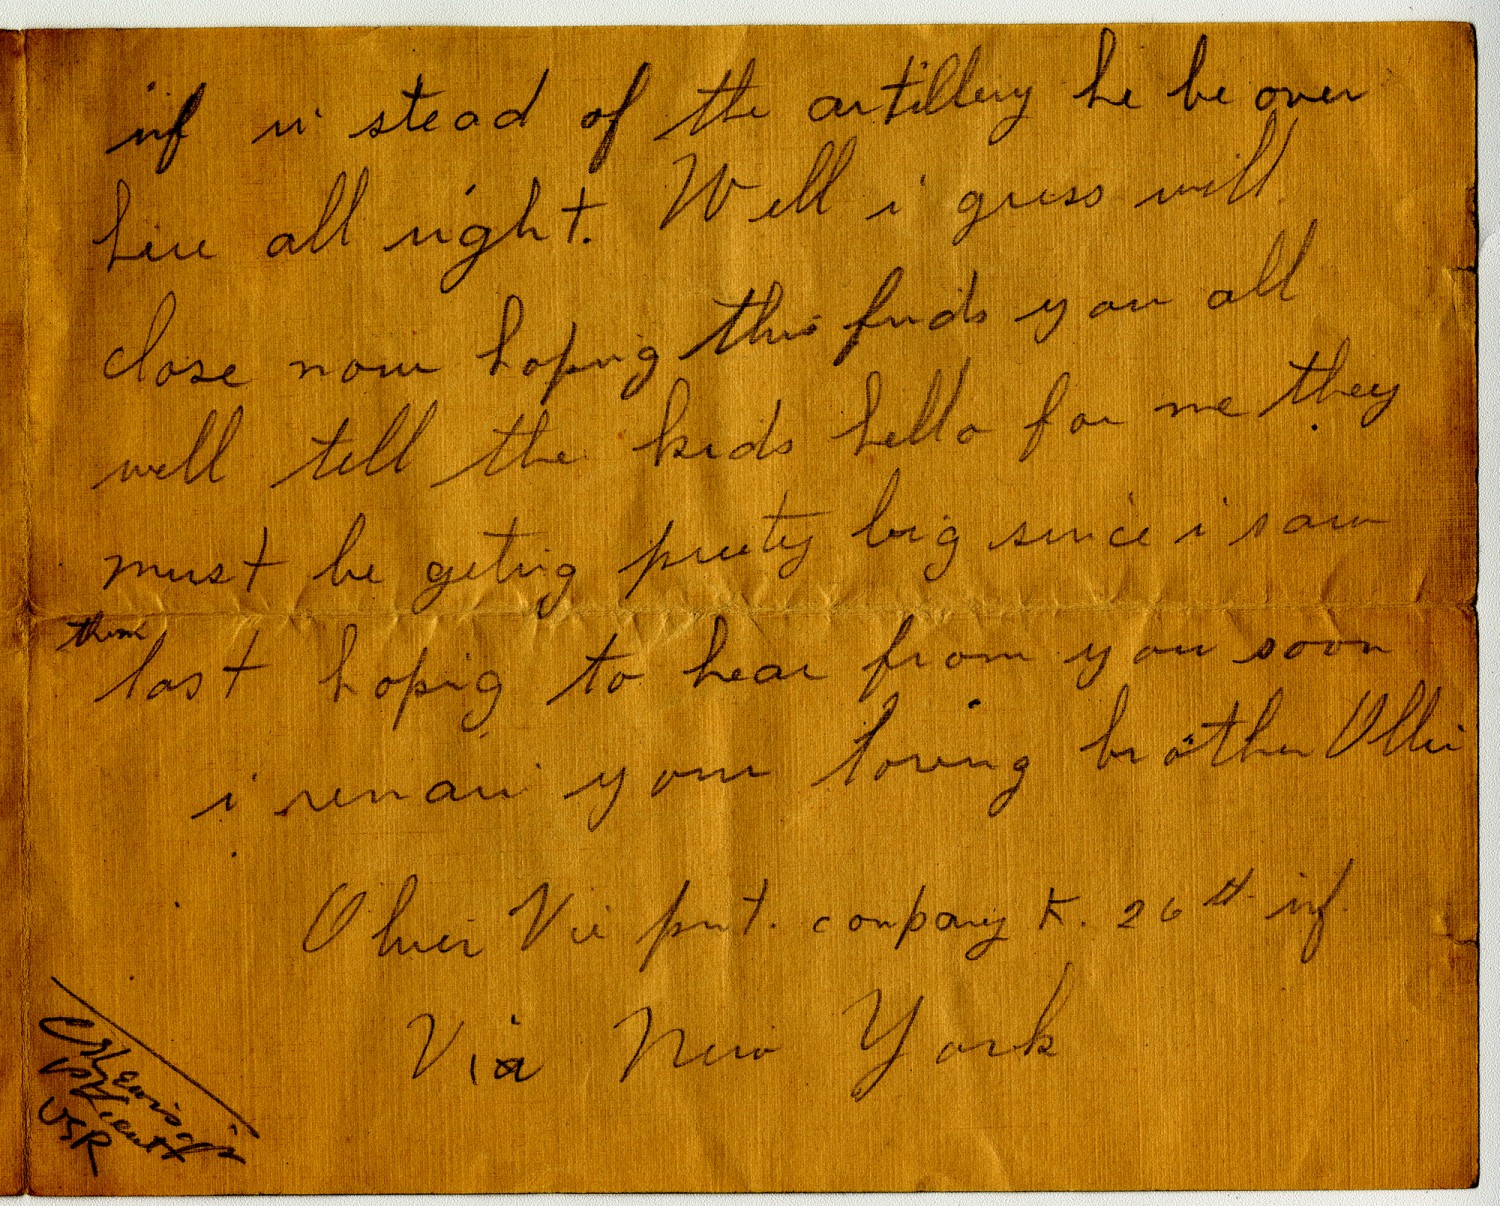 inf in stead of the artillery he be over
here all right. Well i guess will
close now hoping this finds you all
well tell the kids hello for me they
must be geting pretty big since i saw
them
last hopig to hear from you soon
i remain your loving brother Ollie
Oliver Vie pvt. company K. 26th inf.
Via New York
USR